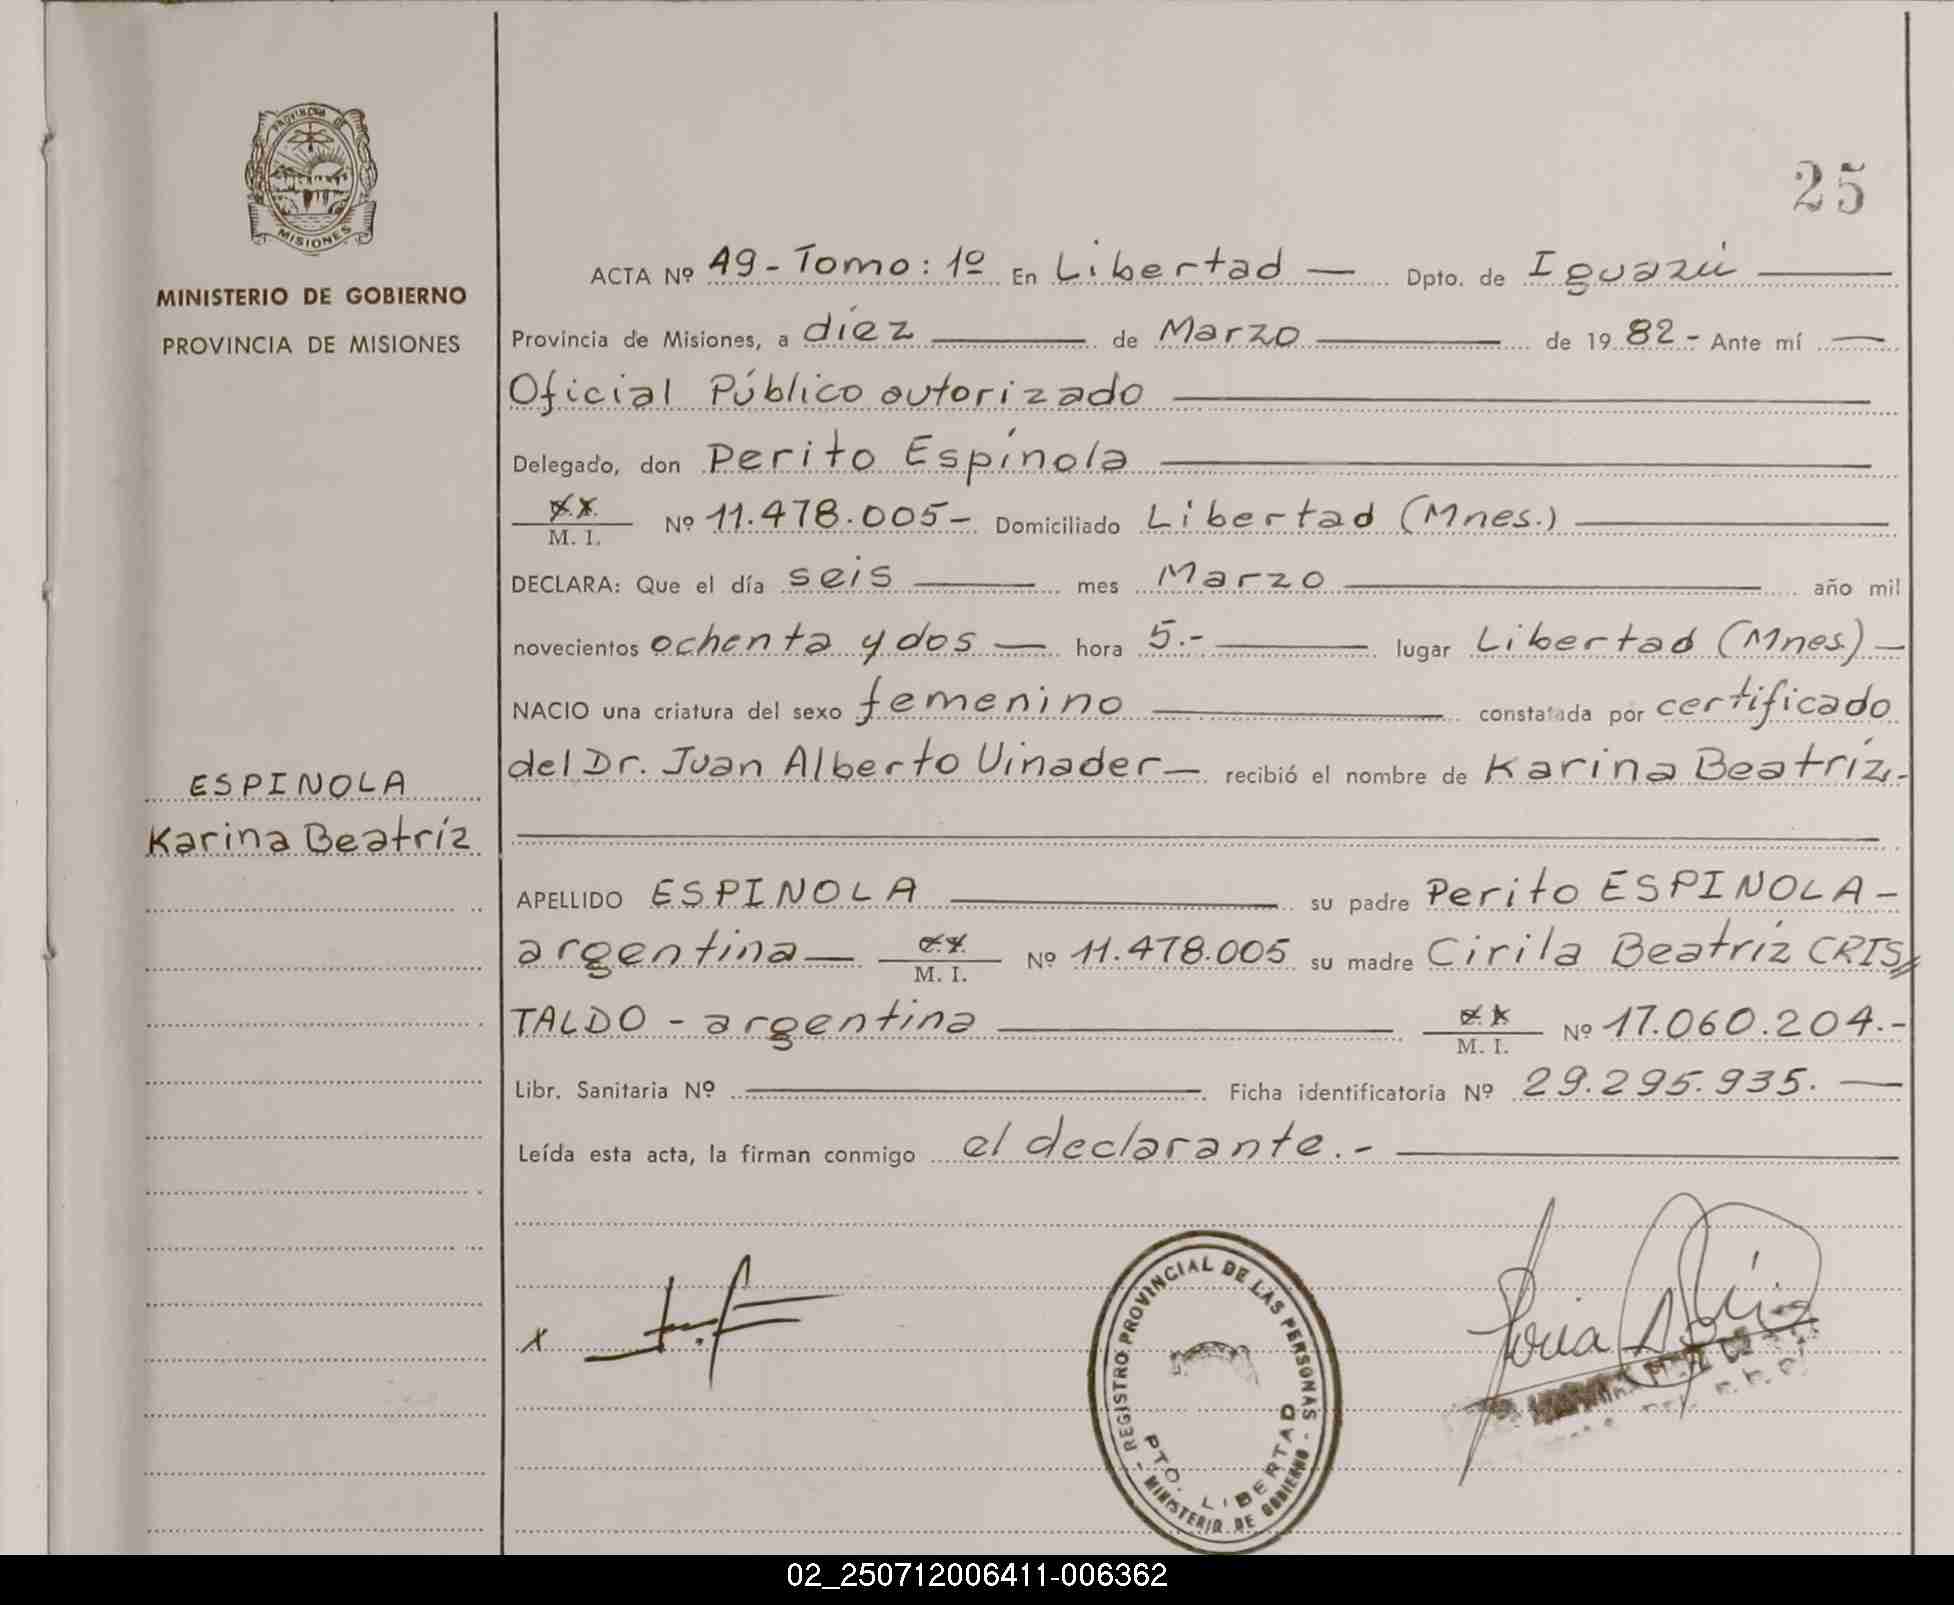 PROVINCIA DE
MISIONES
MINISTERIO DE GOBIERNO
PROVINCIA DE MISIONES
ESPINOLA
Karina Beatríz
25
ACTA Nº 49 - Tomo: 1º En Libertad — Dpto. de Iguazú —
Provincia de Misiones, a díez — de Marzo — de 19 82 - Ante mí —
Oficial Público autorizado —
Delegado, don Perito Espínola —
M. I. Nº 11.478.005 - Domiciliado Libertad (Mnes.) —
DECLARA: Que el día seis — mes Marzo — año mil
novecientos ochenta y dos — hora 5.- — lugar Libertad (Mnes) —
NACIO una criatura del sexo femenino — constatada por certificado
del Dr. Juan Alberto Vinader — recibió el nombre de Karina Beatríz.-
APELLIDO ESPINOLA — su padre Perito ESPINOLA -
argentina — M. I. Nº 11.478.005 su madre Cirila Beatríz CRIS
TALDO - argentina — M. I. Nº 17.060.204.-
Libr. Sanitaria Nº — Ficha identificatoria Nº 29.295.935. —
Leída esta acta, la firman conmigo el declarante.- —
x
- REGISTRO PROVINCIAL DE LAS PERSONAS -
PTO. LIBERTAD
MINISTERIO DE GOBIERNO
02_250712006411-006362